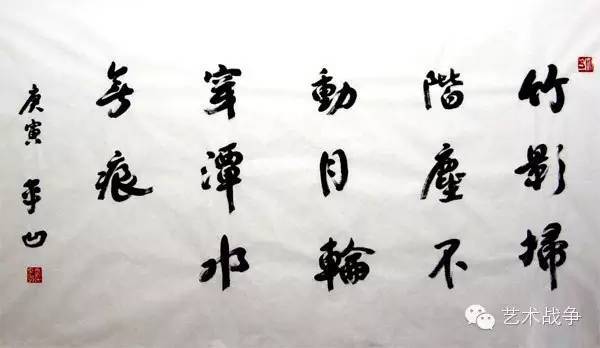 竹影掃
階塵不
動月輪
穿潭水
無痕
庚寅 平凹
艺术战争